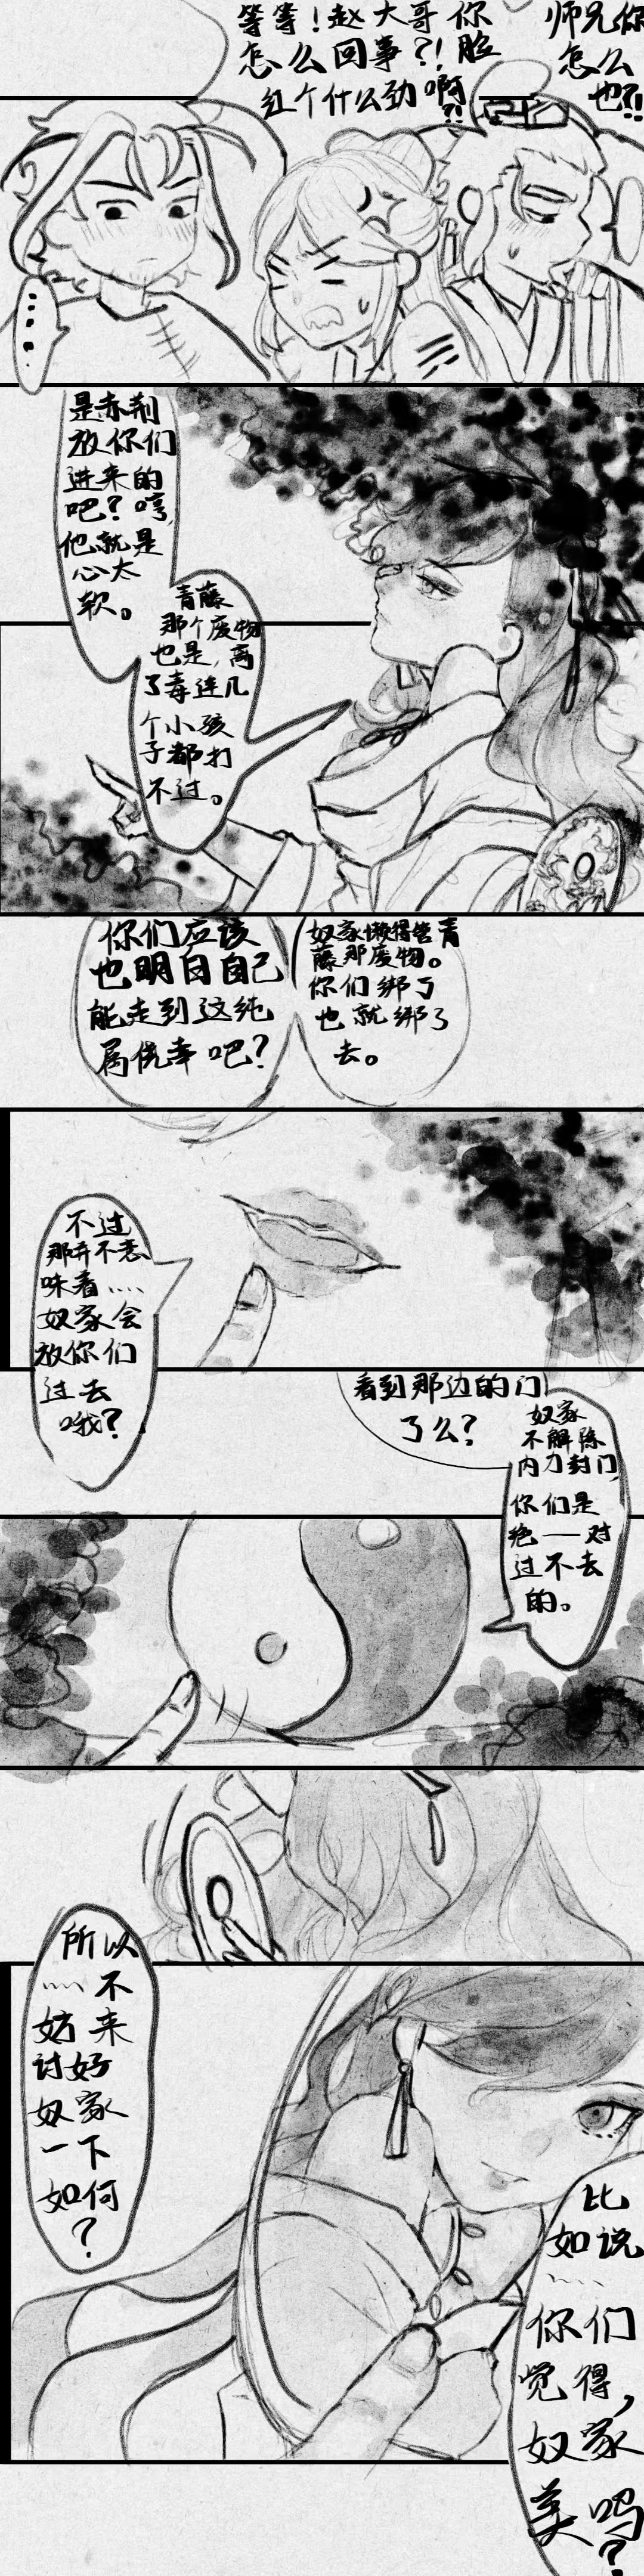 等等！赵大哥你
怎么回事？！脸
红个什么劲啊
？！
师兄你
怎么
也？！
....
是赤荆
放你们
进来的
吧？哼，
他就是
心太
软。
青藤
那个废物
也是，离
了毒连几
个小孩
子都打
不过。
奴家懒得管青
藤那废物。
你们绑了
也就绑了
去。
你们应该
也明白自己
能走到这纯
属侥幸吧？
不过
那并不意
味着....
奴家会
放你们
过去
哦？
看到那边的门
了么？
奴家
不解除
内力封门，
你们是
绝——对
过不去
的。
所以
....不
妨来
讨好
奴家
一下
如何
？
比
如说
....
你们
觉得，
奴家
美吗
？